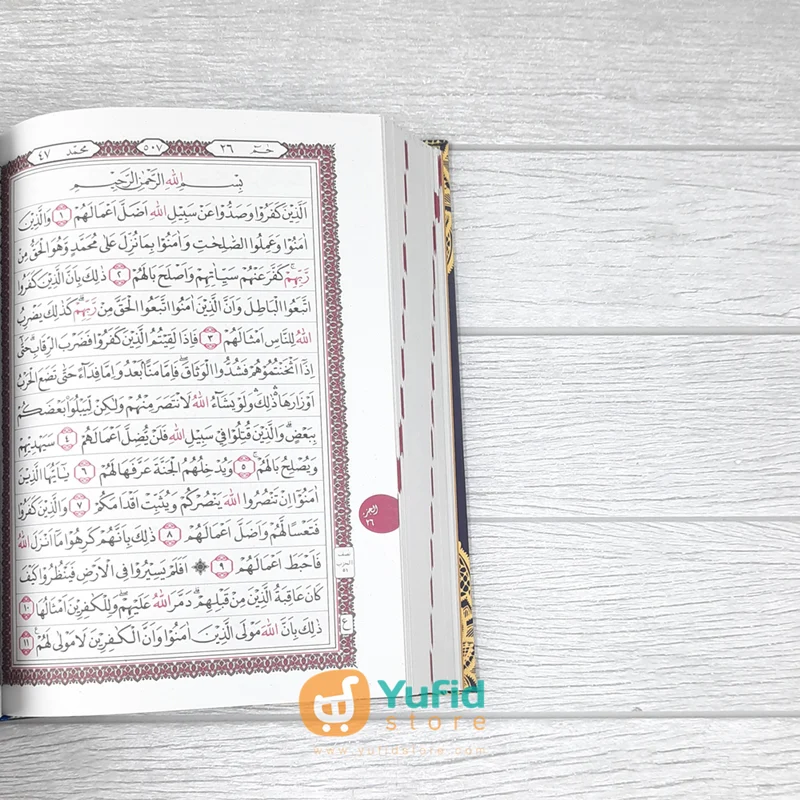 حٰمۤ ٢٦
٥٠٧
محمّد ٤٧
بِسْمِ اللهِ الرَّحْمٰنِ الرَّحِيْمِ
اَلَّذِيْنَ كَفَرُوْا وَصَدُّوْا عَنْ سَبِيْلِ اللهِ اَضَلَّ اَعْمَالَهُمْ ١ وَالَّذِيْنَ
اٰمَنُوْا وَعَمِلُوا الصّٰلِحٰتِ وَاٰمَنُوْا بِمَا نُزِّلَ عَلٰى مُحَمَّدٍ وَّهُوَ الْحَقُّ مِنْ
رَّبِّهِمْۙ كَفَّرَ عَنْهُمْ سَيِّاٰتِهِمْ وَاَصْلَحَ بَالَهُمْ ٢ ذٰلِكَ بِاَنَّ الَّذِيْنَ كَفَرُوا
اتَّبَعُوا الْبَاطِلَ وَاَنَّ الَّذِيْنَ اٰمَنُوا اتَّبَعُوا الْحَقَّ مِنْ رَّبِّهِمْۗ كَذٰلِكَ يَضْرِبُ
اللهُ لِلنَّاسِ اَمْثَالَهُمْ ٣ فَاِذَا لَقِيْتُمُ الَّذِيْنَ كَفَرُوْا فَضَرْبَ الرِّقَابِۗ حَتّٰٓى
اِذَآ اَثْخَنْتُمُوْهُمْ فَشُدُّوا الْوَثَاقَۖ فَاِمَّا مَنًّاۢ بَعْدُ وَاِمَّا فِدَاۤءً حَتّٰى تَضَعَ الْحَرْبُ
اَوْزَارَهَا ۛ ذٰلِكَ ۛ وَلَوْ يَشَاۤءُ اللهُ لَانْتَصَرَ مِنْهُمْ وَلٰكِنْ لِّيَبْلُوَا۟ بَعْضَكُمْ
بِبَعْضٍۗ وَالَّذِيْنَ قُتِلُوْا فِيْ سَبِيْلِ اللهِ فَلَنْ يُّضِلَّ اَعْمَالَهُمْ ٤ سَيَهْدِيْهِمْ
وَيُصْلِحُ بَالَهُمْۚ ٥ وَيُدْخِلُهُمُ الْجَنَّةَ عَرَّفَهَا لَهُمْ ٦ يٰٓاَيُّهَا الَّذِيْنَ
اٰمَنُوْٓا اِنْ تَنْصُرُوا اللهَ يَنْصُرْكُمْ وَيُثَبِّتْ اَقْدَامَكُمْ ٧ وَالَّذِيْنَ كَفَرُوْا
فَتَعْسًا لَّهُمْ وَاَضَلَّ اَعْمَالَهُمْ ٨ ذٰلِكَ بِاَنَّهُمْ كَرِهُوْا مَآ اَنْزَلَ اللهُ
فَاَحْبَطَ اَعْمَالَهُمْ ٩ ۞ اَفَلَمْ يَسِيْرُوْا فِى الْاَرْضِ فَيَنْظُرُوْا كَيْفَ
كَانَ عَاقِبَةُ الَّذِيْنَ مِنْ قَبْلِهِمْۗ دَمَّرَ اللهُ عَلَيْهِمْۖ وَلِلْكٰفِرِيْنَ اَمْثَالُهَا ١٠
ذٰلِكَ بِاَنَّ اللهَ مَوْلَى الَّذِيْنَ اٰمَنُوْا وَاَنَّ الْكٰفِرِيْنَ لَا مَوْلٰى لَهُمْ ١١
الجزء
٢٦
نصف
الحزب
٥١
ع
Yufid
store
www.yufidstore.com